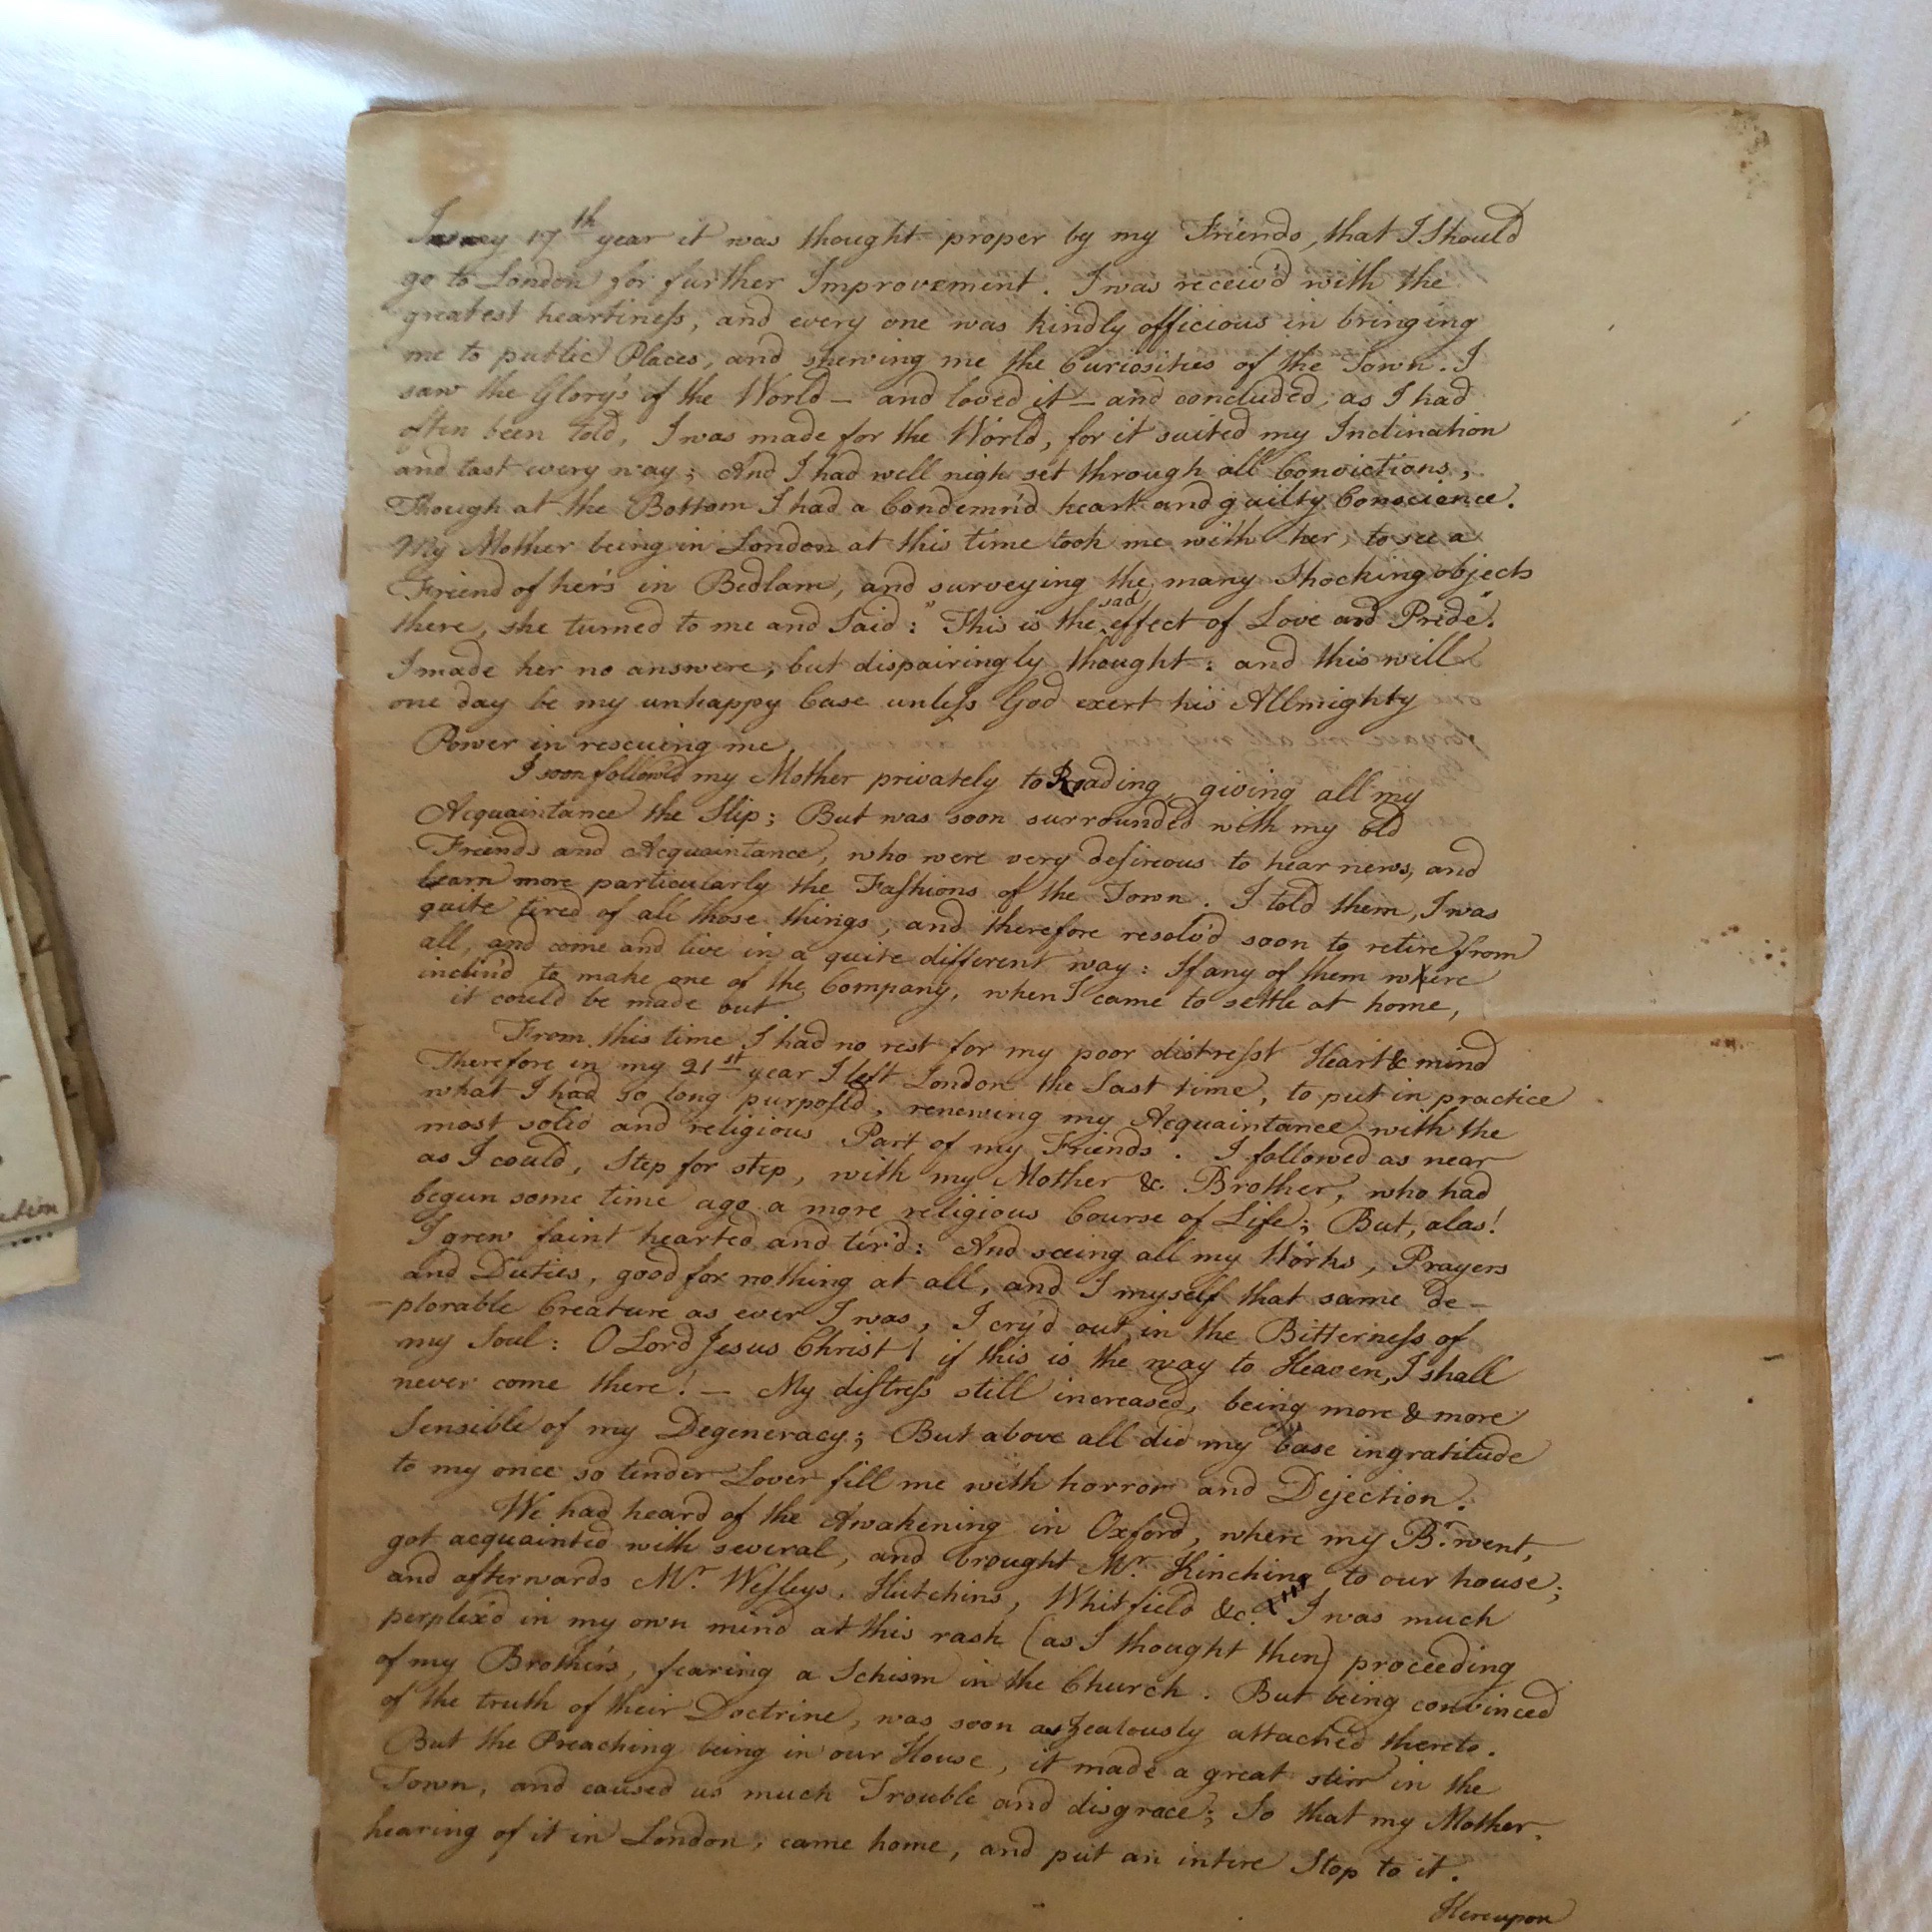 In my 17th year it was thought proper by my Friends, that I Should
go to London for further Improvement. I was receiv'd with the
greatest heartiness, and every one was kindly officious in bringing
me to public Places, and shewing me the Curiosities of the Town. I
saw the Glory's of the World – and loved it – and concluded, as I had
often been told, I was made for the World, for it suited my Inclination
and tast every way; And I had well nigh set through all Convictions,
Though at the Bottom I had a Condemn'd heart and guilty Conscience.
My Mother being in London at this time took me with her, to see a
Friend of her's in Bedlam, and surveying the many Shocking objects
there, she turned to me and Said: "This is the sad effect of Love and Pride".
I made her no answere, but dispairingly thought: and this will
one day be my unhappy Case unless God exert his Allmighty
Power in rescuing me.
I soon follow'd my Mother privately to Reading, giving all my
Acquaintance the Slip; But was soon surrounded with my old
Friends and Acquaintance, who were very desireous to hear news, and
learn more particularly the Fashions of the Town. I told them, I was
quite tired of all those things, and therefore resolv'd soon to retire from
all, and come and live in a quite different way: If any of them were
inclin'd to make one of the Company, when I came to settle at home,
it could be made out.
From this time I had no rest for my poor distresst Heart & mind
Therefore in my 21st year I left London the Last time, to put in practice
what I had so long purposed, renewing my Acquaintance with the
most solid and religious Part of my Friends. I followed as near
as I could, Step for step, with my Mother & Brother, who had
begun some time ago a more religious Course of Life; But, alas!
I grew faint hearted and tir'd: And seeing all my Works, Prayers
and Duties, good for nothing at all, and I myself that same de-
-plorable Creature as ever I was, I cry'd out in the Bitterness of
my Soul: O Lord Jesus Christ! if this is the way to Heaven, I shall
never come there! – My distress still increased, being more & more
Sensible of my Degeneracy; But above all did my base ingratitude
to my once so tender Lover fill me with horror and Dejection.
We had heard of the Awakening in Oxford, where my Br. went,
got acquainted with several, and brought Mr. Kinching to our house;
and afterwards Mr. Wesleys, Hutchins, Whitfield &c. I was much
perplex'd in my own mind at this rash (as I thought then) proceeding
of my Brother's, fearing a Schism in the Church. But being convinced
of the truth of their Doctrine, was soon as zealously attached thereto.
But the Preaching being in our House, it made a great stirr in the
Town, and caused us much Trouble and disgrace; So that my Mother,
hearing of it in London, came home, and put an intire Stop to it.
Hereupon